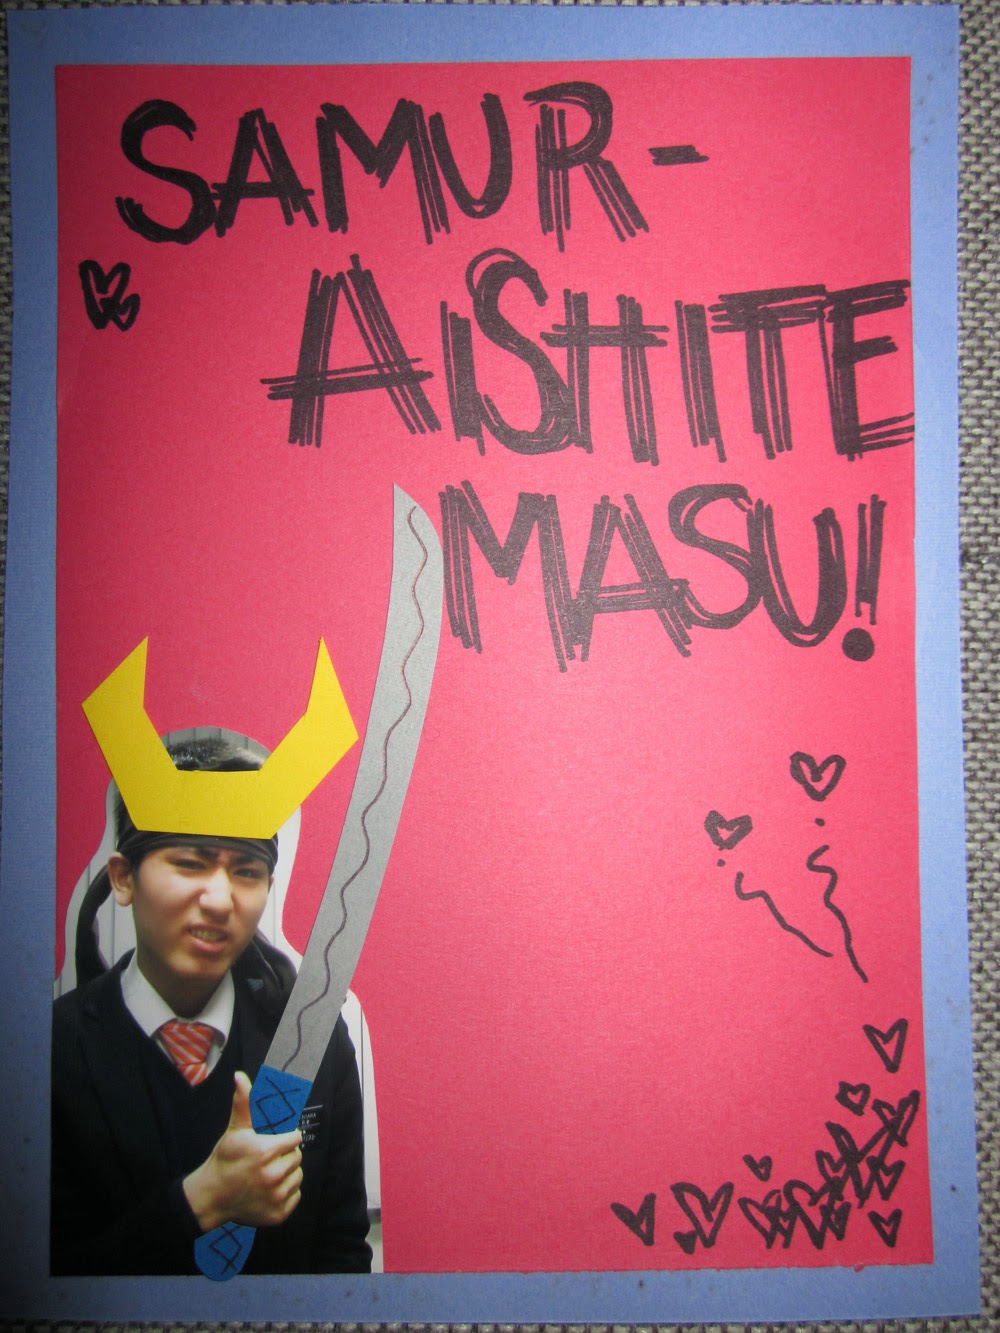 SAMUR-
AISHITE
MASU!